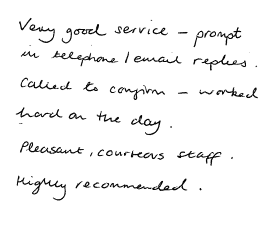 Very good service – prompt
in telephone / email replies.
Called to confirm – worked
hard on the day.
Pleasant, courteous staff.
Highly recommended.